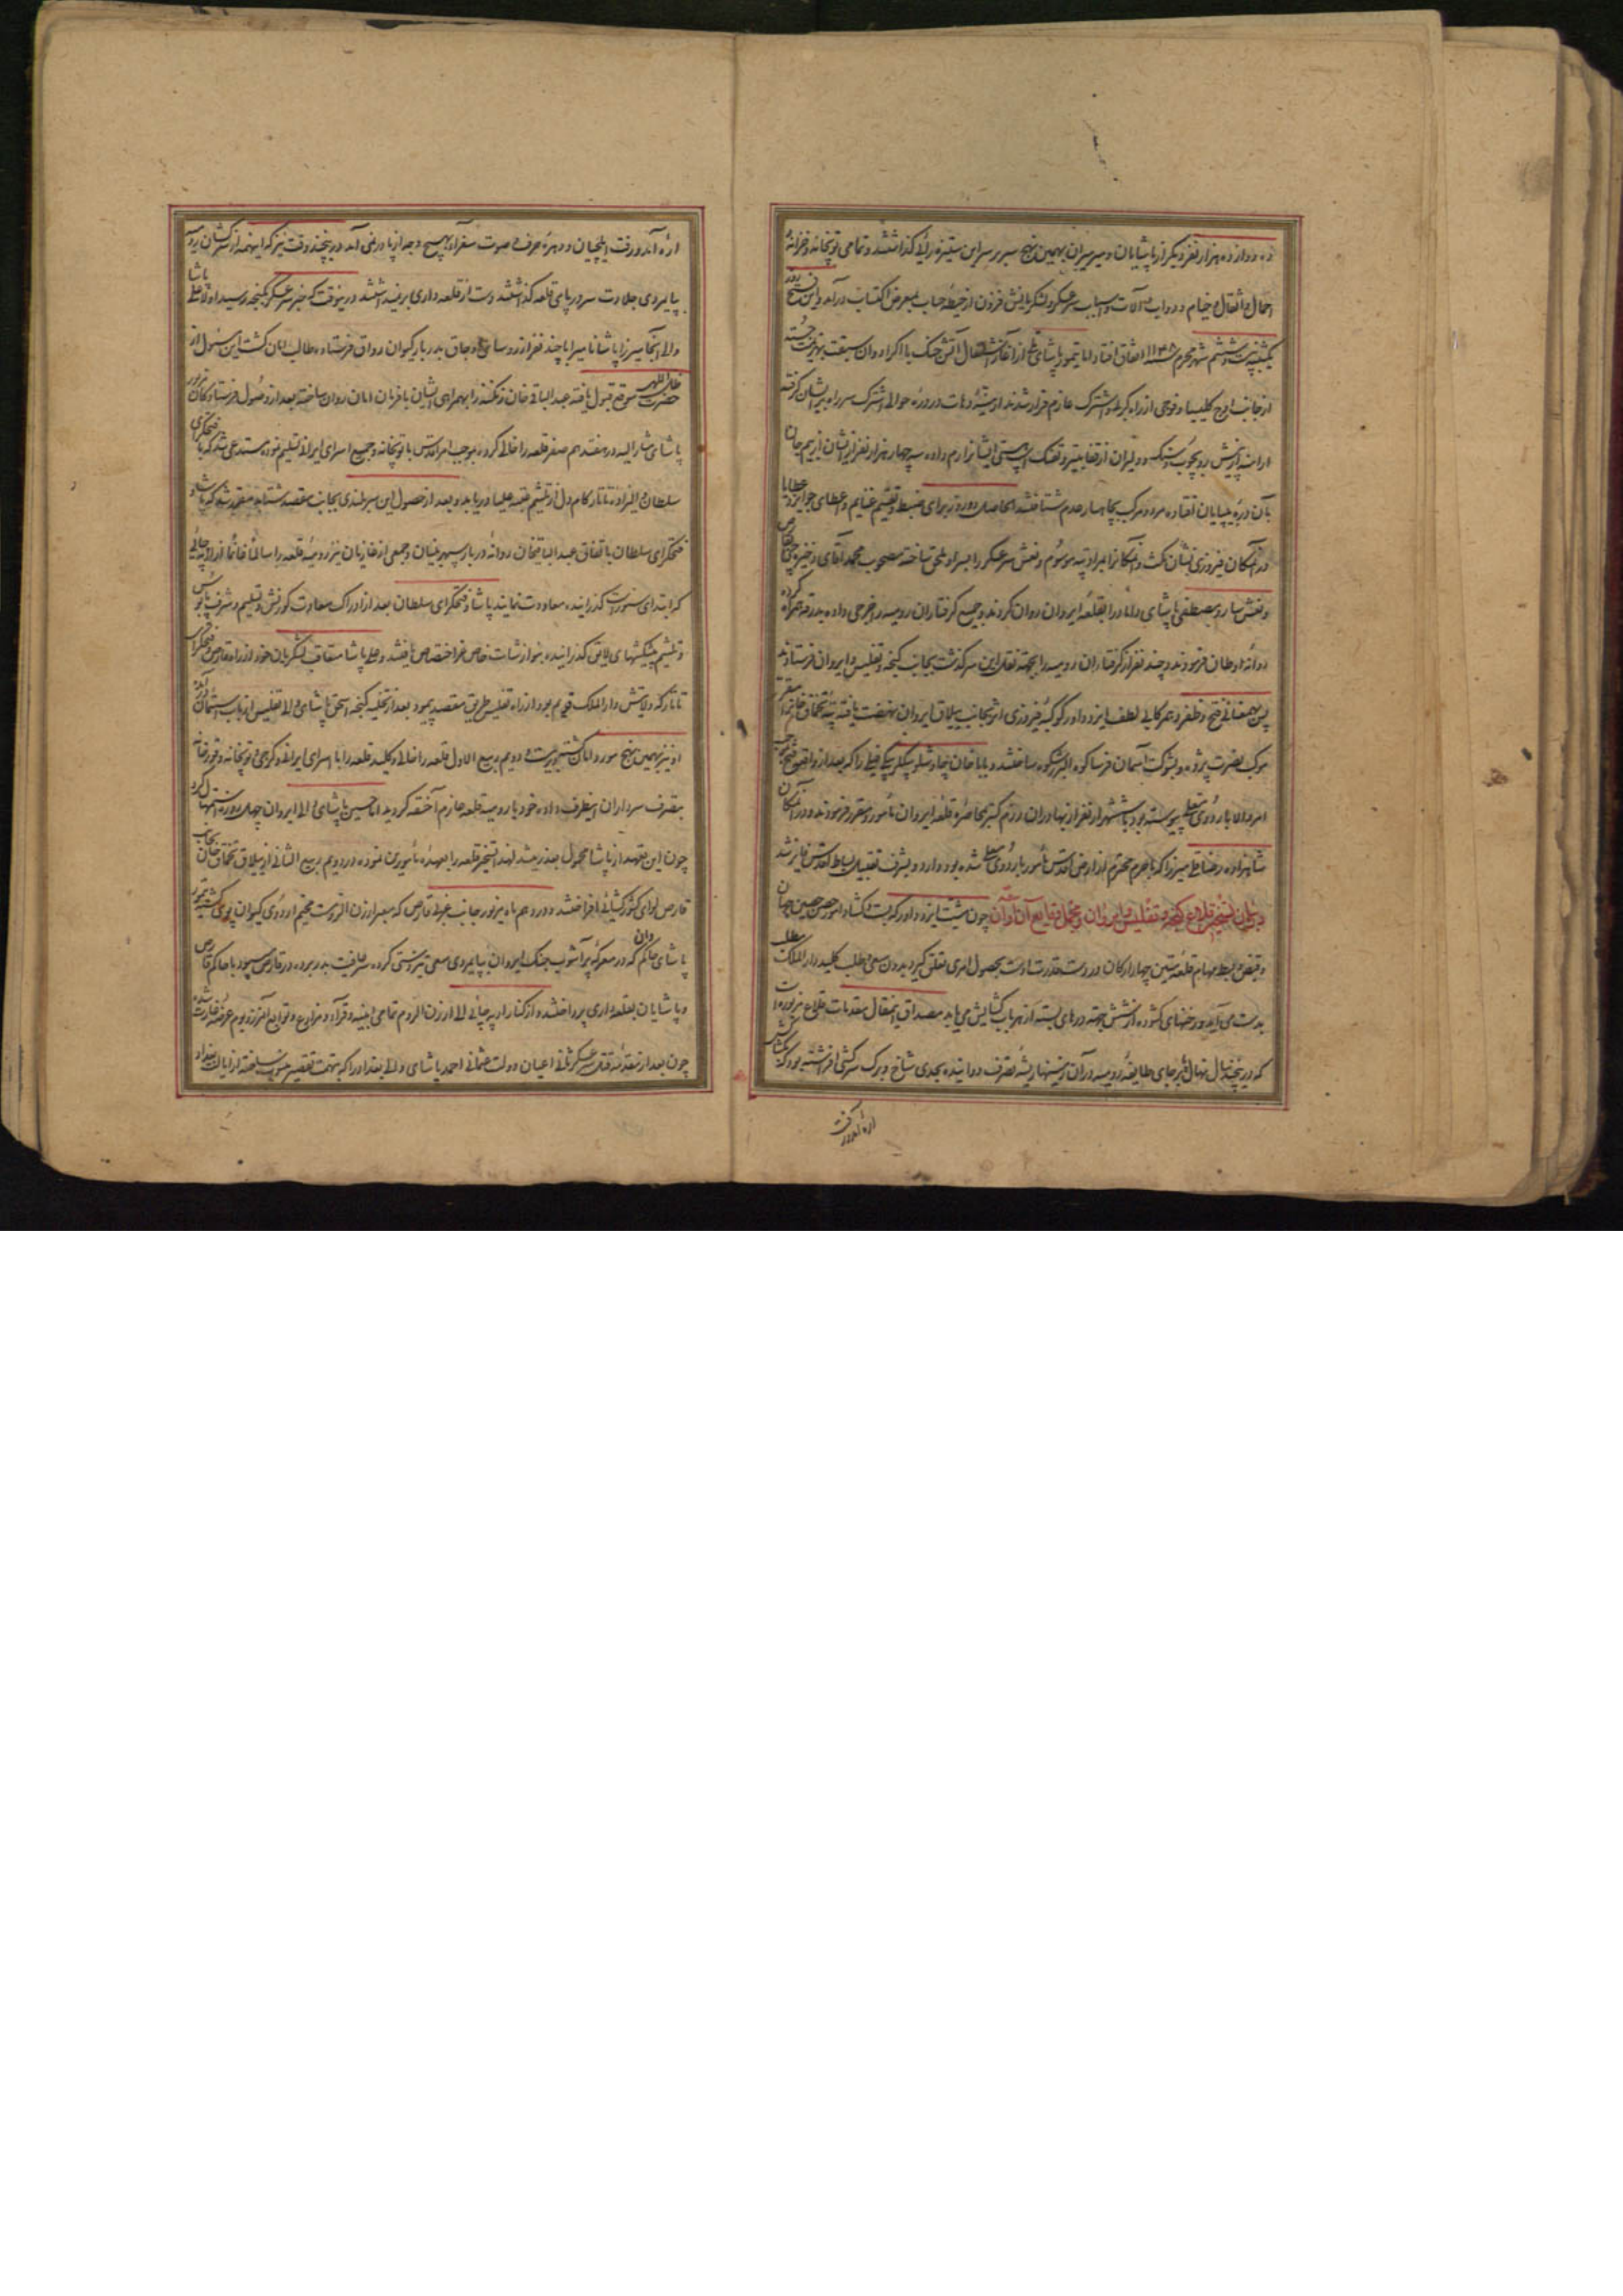 ده دوازده هزار نفر دیگر از پاشایان و میرمیران بهمین نهج سر بر سر این ستیزه رائی گذاشتند و تمامی توپخانه و خزانه
احمال و اثقال و خیام و دواب و آلات و اسباب سرعسکر و لشکریانش فزون از حیطه حساب بمعرض اکتساب درآمد و این فتح روز
یکشنبه بیست و ششم شهر محرم سنه ۱۱۴۸ اتفاق افتاد اما تیمور پاشای از آغاز اشتعال آتش جنگ با اکراد وان سبقت بهزیمت جسته
از جانب اوچ کلیسا و فوجی از راه اشترک عازم فرار شدند ارمنیه دهات و در دره حوالی اشترک سر راه بر ایشان گرفته
ارامنه از پیش رو بچوب و سنگ و دلیران از قفا به تیر و تفنگ ایشانرا رم داده سه چهار هزار نفر از ایشان از بیم جان
بآن دره بی پایان افتاده مرد و مرکب بچاهسار عدم شتافتند القصه دو روز برای ضبط و تقسیم غنایم و اعطای جوایز و عطایا
در آن مکان فیروزی نشان مکث و آن مکانرا بمراد تپه موسوم و نعش سرعسکر را بسر او ملحق ساخته مصحوب محمد آقای ذخیره چی بقارص
و نعش سارو مصطفی پاشای داماد را بقلعه ایروان روان کردند و جمیع گرفتاران رومیه را خرجی داده بدرقه همراه کرده
روانه اوطان فرمودند و چند نفر از گرفتاران رومیه را بجهة نقل این سرگذشت بجانب گنجه و تفلیس و ایروان فرستادند
پس بهمعنانی فتح و ظفر و همرکابی لطف ایزد داور کوکبه فیروزی اثر بجانب ییلاق ایروان نهضت یافته تپه تخماق خان مقر
موکب نصرت پژوه و بشوکت آسمان فرسا کوه البرز شکوه ساختند و بابا خان چاوشلو بیگلربیگی فیلی را که بعد از واقعه فتح بموجب
امر والا باردوی معلی پیوسته بود با شش هزار نفر از بهادران رزم گستر بمحاصره قلعه ایروان مأمور و مقرر فرمودند و در آن مکان
شاهزاده رضاقلی میرزا که با حرم محترم از ارض اقدس مأمور باردوی معلی شده بود وارد و بشرف تقبیل بساط اقدس فایز شد
در بیان تسخیر قلاع گنجه و تفلیس و ایروان و مجمل وقایع آن اوان چون مشیت ایزد داور که بست و گشاد امور حصن حصین جهان
و قبض و بسط مهام قلعه متین چهار ارکان در دست قدرت اوست بحصول امری تعلق گیرد بدون سعی طلب کلید دارالملک مطلب
بدست می آید و رخنهای گشوده از شش جهة درهای بسته از هر باب گشایش می یابد مصداق این مقال مقدمات قلاع مزبوره است
که در چند سال نهال تدبیر جای طایفه رومیه در آن سرزمینها ریشه تصرف دوانیده بحدی شاخ و برگ سرکشی افراشته بود که
اره آمد و رفت
اره آمد و رفت ایلچیان و دمبره حرف و صوت سفرا بهیچ وجه از پا در نمی آمد در چند وقت نیز که این همه سرکشان رو بـ
پایمردی جلادت سر در پای قلعه گذاشتند دست از قلعه داری برنداشتند درین وقت که خبر سرعسکر بگنجه رسید اولا علی پاشا
والی آنجا میرزا پاشا نام میر را با چند نفر از رؤسای اوجاق بدربار کیوان رواق فرستاده طالب امان گشت این مسئول از
حضرت ظل اللهی موقع قبول یافته عبدالباقی خان زنگنه را بهمراهی ایشان با فرمان امان روان ساخته بعد از وصول فرستادگان
پاشای مشارالیه در هفدهم صفر قلعه را خالی کرد و بموجب امر اقدس با توپخانه و جمیع اسرای ایرانی تسلیم نموده مستدعی شد که با فتحگرای
سلطان والیزاده تاتار کام دل از تلثیم عتبه علیا دریابد و بعد از حصول این سربلندی بجانب مقصد شتابد مقرر شد که پاشا و
فتحگرای سلطان باتفاق عبدالباقیخان روانه دربار سپهر بنیان و جمعی از غازیان نیز رومیه قلعه را سالما غانما از آرپه چائی
که ابتدای است گذرانیده معاودت نمایند پاشا و فتحگرای سلطان بعد از ادراک سعادت کورنش و تسلیم و شرف پابوس
و تلثیم پیشکشهای لایق گذرانیده بنوازشات خاص عز اختصاص یافتند و علی پاشا متعاقب لشکریان خود از راه قارص و فتحگرای
تاتار که ولایتش دارالملک قریم بود از راه تفلیس طریق مقصد پیمود بعد از تخلیه گنجه اسحق پاشای والی تفلیس از باب استیمان درآمده
او نیز بهمین نهج مورد امان گشته بیست و دویم ربیع الاول قلعه را خالی و کلید قلعه را با اسرای ایرانی و گرجی و توپخانه و قورخانه
بتصرف سرداران اینطرف داده خود با رومیه قلعه عازم آخسقه گردید اما حسین پاشای والی ایروان چهل روزه استمهال کرد
چون این تعهد از پاشا محمول بعذر میشد لهذا تسخیر قلعه را بعهده مأمورین نموده در دویم ربیع الثانی از ییلاق تخماق خان بجانب
قارص لوای کشورگشائی افراختند و در دهم ماه مزبور جانب غربی قارص که معبر ارزن الروم است مخیم اردوی کیوان پوی گشته تیمور
پاشای حاکم وان که در معرکه پرآشوب جنگ ایروان بپایمردی سعی تیزدستی کرده سر بعافیت بدر برده در قارص میبود با حاکم قارص
و پاشایان بقلعه داری پرداختند و از کنار آرپه چائی الی ارزن الروم تمامی ابنیه و قرا و مزارع و توابع آن مرز و بوم عرضه غارت شد
چون بعد از مقدمه قتل سرعسکر ثانی اعیان دولت عثمانی احمد پاشای والی بغداد را که بتهمت تقصیر منسوب ساخته از ایالت بغداد